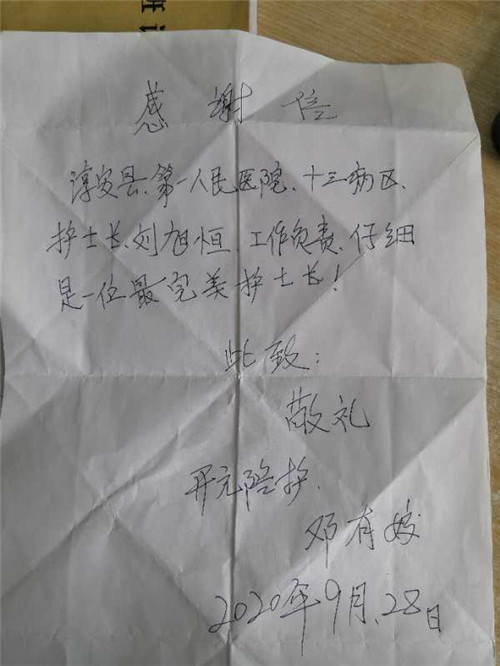 感谢信
淳安县、第一人民医院、十三病区、
护士长、刘旭恒、工作负责、仔细
是一位最完美护士长！
此致：
敬礼
开元陪护、
邓有姣
2020年9月、28日